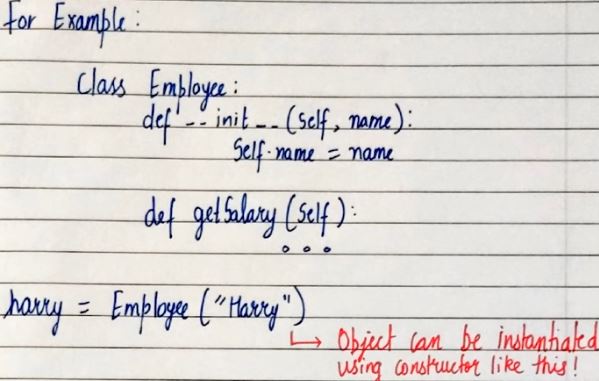 For Example:
Class Employee:
def __init__(self, name):
Self.name = name
def getSalary(Self):
...
harry = Employee("Harry")
↳ Object can be instantiated
using constructor like this!